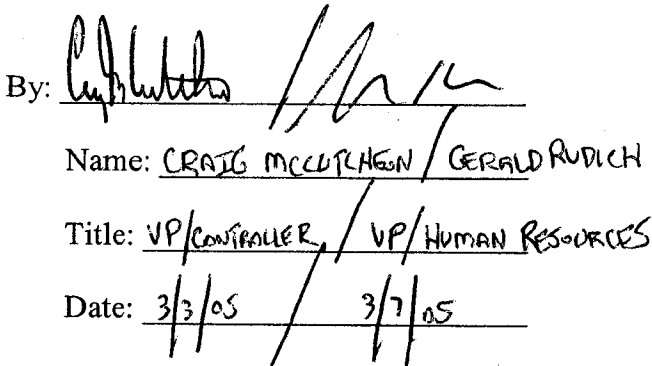 By:
Name: CRAIG MCCUTCHEON / GERALD RUDICH
Title: VP/CONTROLLER / VP/HUMAN RESOURCES
Date: 3/3/05 / 3/7/05